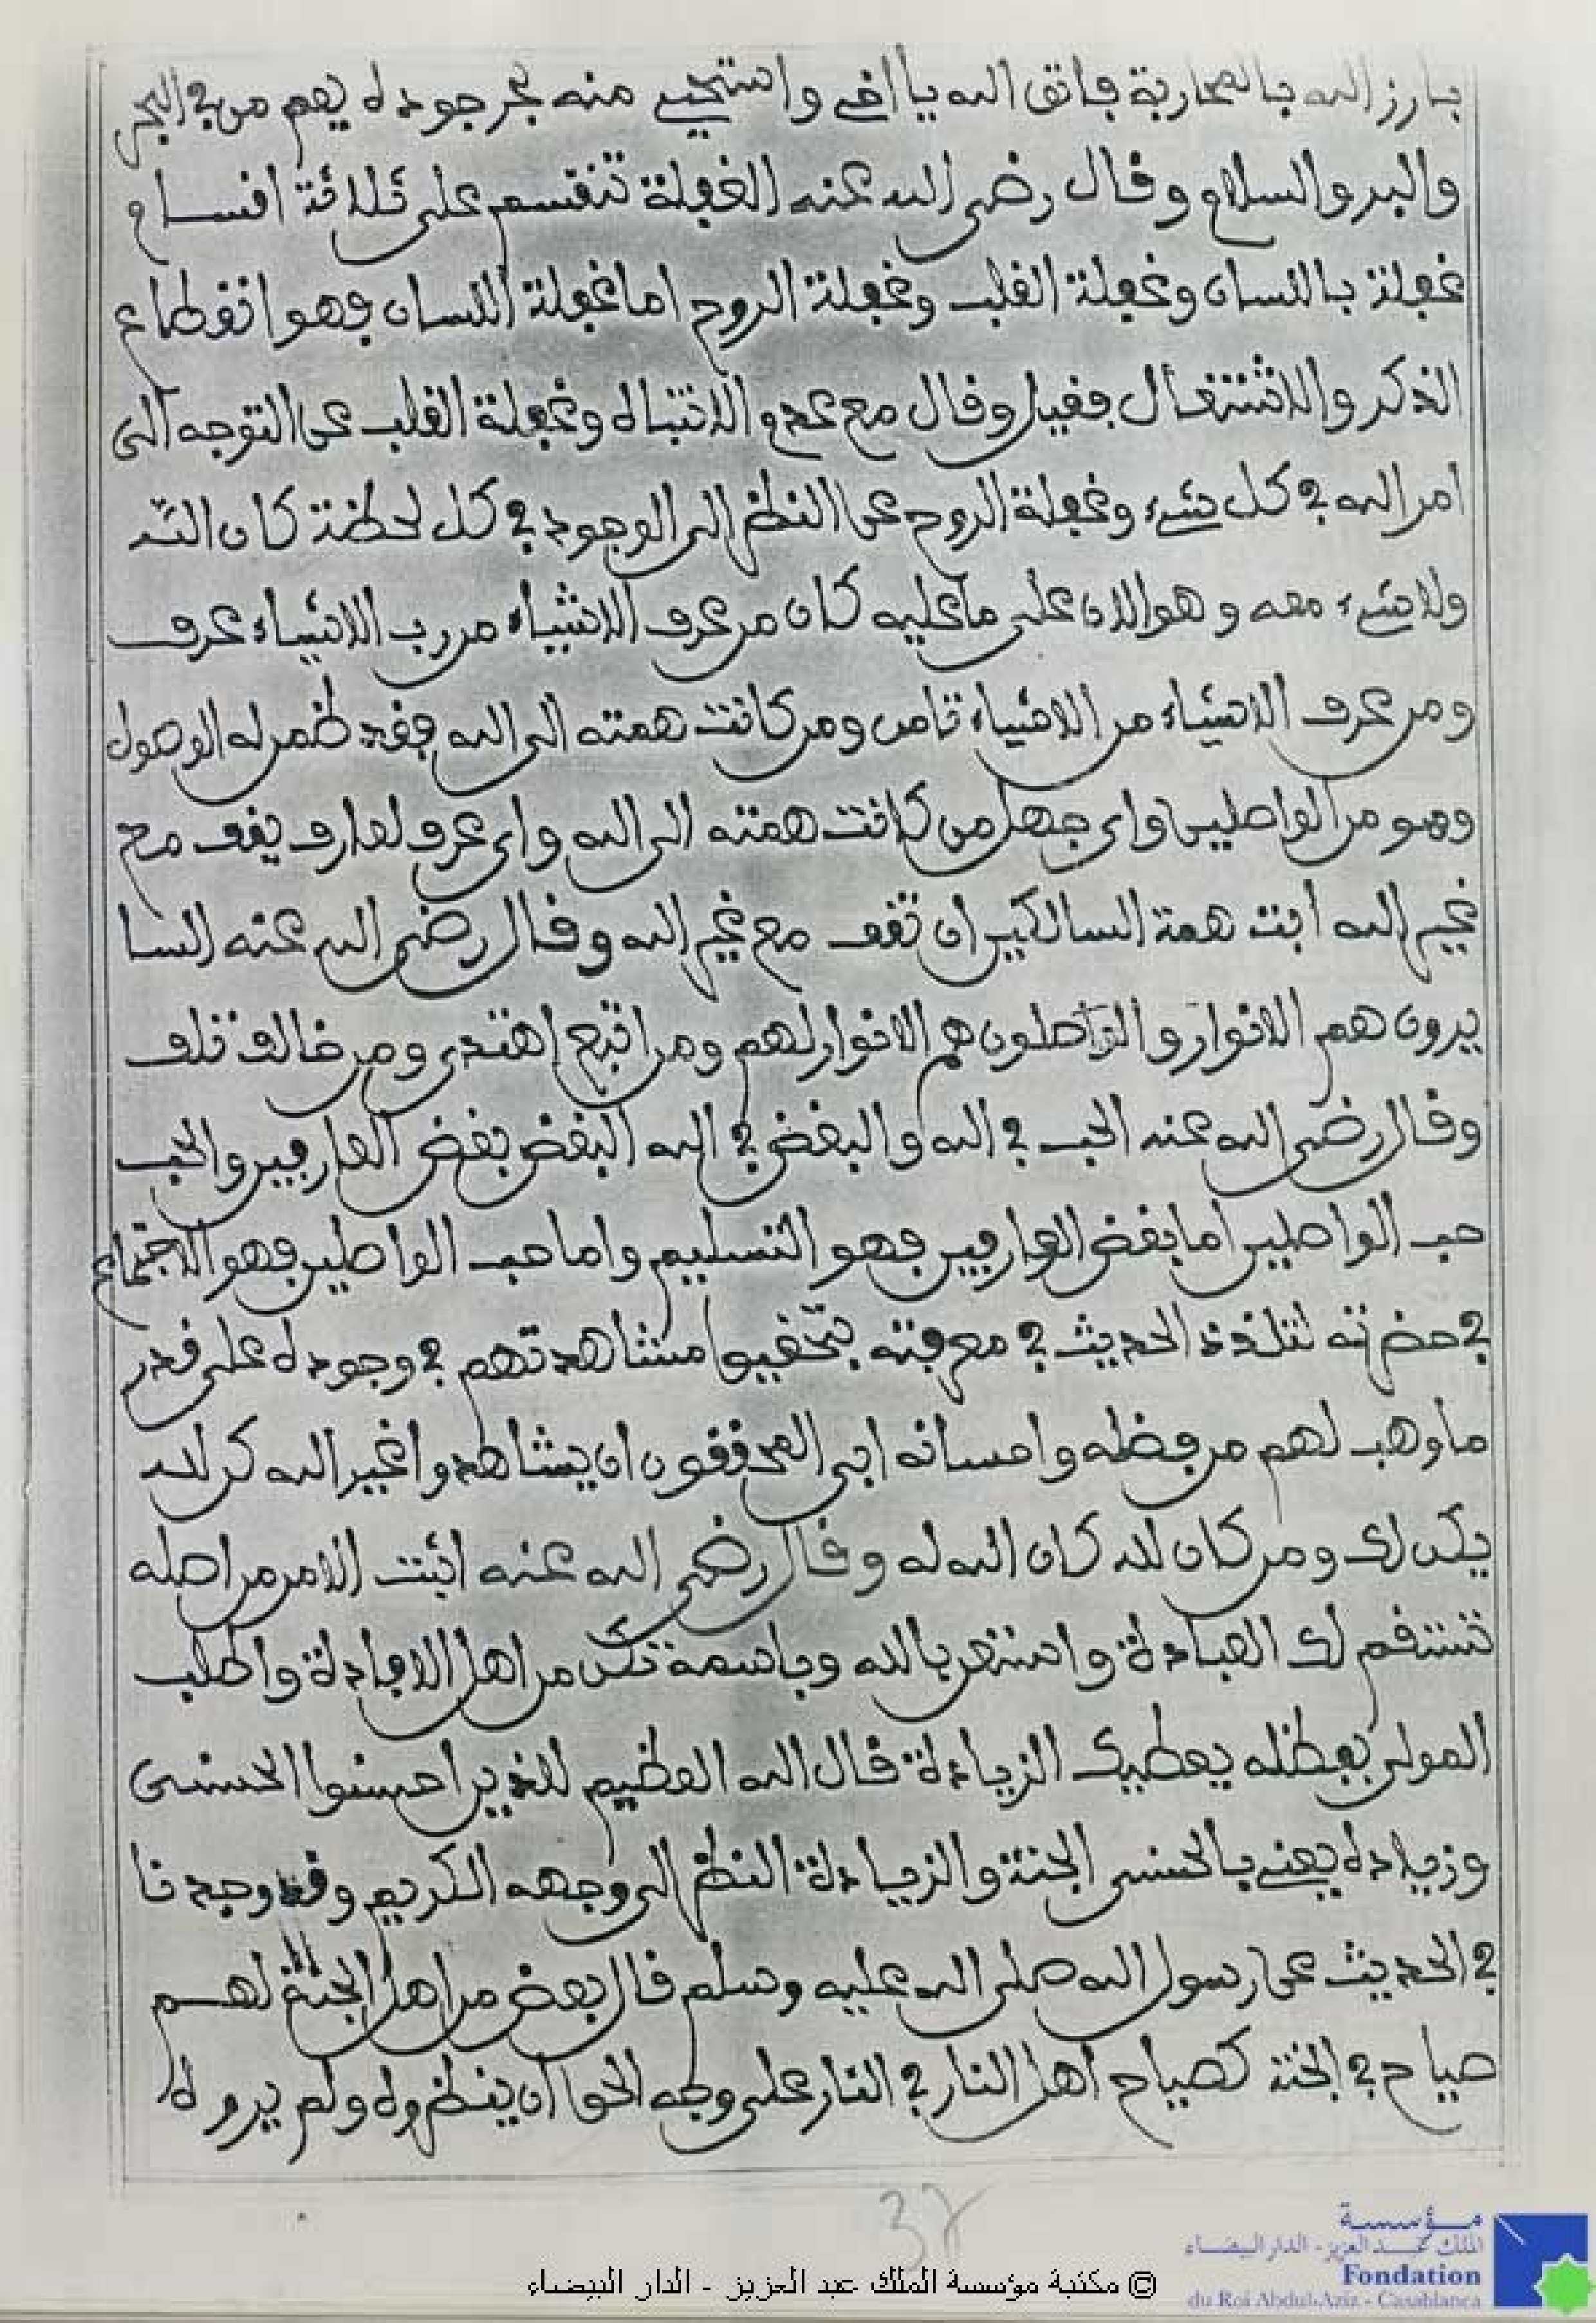 بارز الله بالمحاربة فاتق الله يا اخي واستحيي منه بحر جوده يعم من في البحر
والبر والسلام وقال رضى الله عنه الغفلة تنقسم على ثلاثة اقسام
غفلة باللسان وغفلة القلب وغفلة الروح اما غفلة اللسان فهو انقطاع
الذكر والاشتغال بقيل وقال مع عدم الانتباه وغفلة القلب عن التوجه الى
امر الله في كل شيء وغفلة الروح عن النظر الى الوجود في كل لحظة كان الله
ولا شيء معه وهو الان على ما عليه كان من عرف الاشياء من رب الاشياء عرف
ومن عرف الاشياء من الاشياء تاه ومن كانت همته الى الله فقد ظهر له الوصول
وهو من الواصلين واي جهل من كانت همته الى الله واي عرف لعارف يقف مع
غير الله ابت همة السالكين ان تقف مع غير الله وقال رضى الله عنه السا
يرون هم الانوار والواصلون هم الانوار لهم ومن اتبع اهتدى ومن خالف تلف
وقال رضى الله عنه الحب في الله والبغض في الله البغض بغض العارفين والحب
حب الواصلين اما بغض العارفين فهو التسليم واما حب الواصلين فهو الاجتماع
في حضرته لتلذذ الحديث في معرفته بتحقيق مشاهدتهم في وجوده على قدر
ما وهب لهم من فضله واحسانه ابى المحققون ان يشاهدوا غير الله كن لله
يكن لك ومن كان لله كان الله له وقال رضى الله عنه اثبت الامر من اصله
تستقم لك العبادة واستعن بالله وباسمه تكن من اهل الافادة واطلب
المولى بفضله يعطيك الزيادة قال الله العظيم للذين احسنوا الحسنى
وزيادة يعني بالحسنى الجنة والزيادة النظر الى وجهه الكريم وقد وجدنا
في الحديث عن رسول الله صلى الله عليه وسلم قال بعض من اهل الجنة لهم
صياح في الجنة كصياح اهل النار في النار على وجه الحق ان ينظروه ولم يروه
37
© مكتبة مؤسسة الملك عبد العزيز - الدار البيضاء
مؤسسة
الملك عبد العزيز - الدار البيضاء
Fondation
du Roi Abdul-Aziz - Casablanca